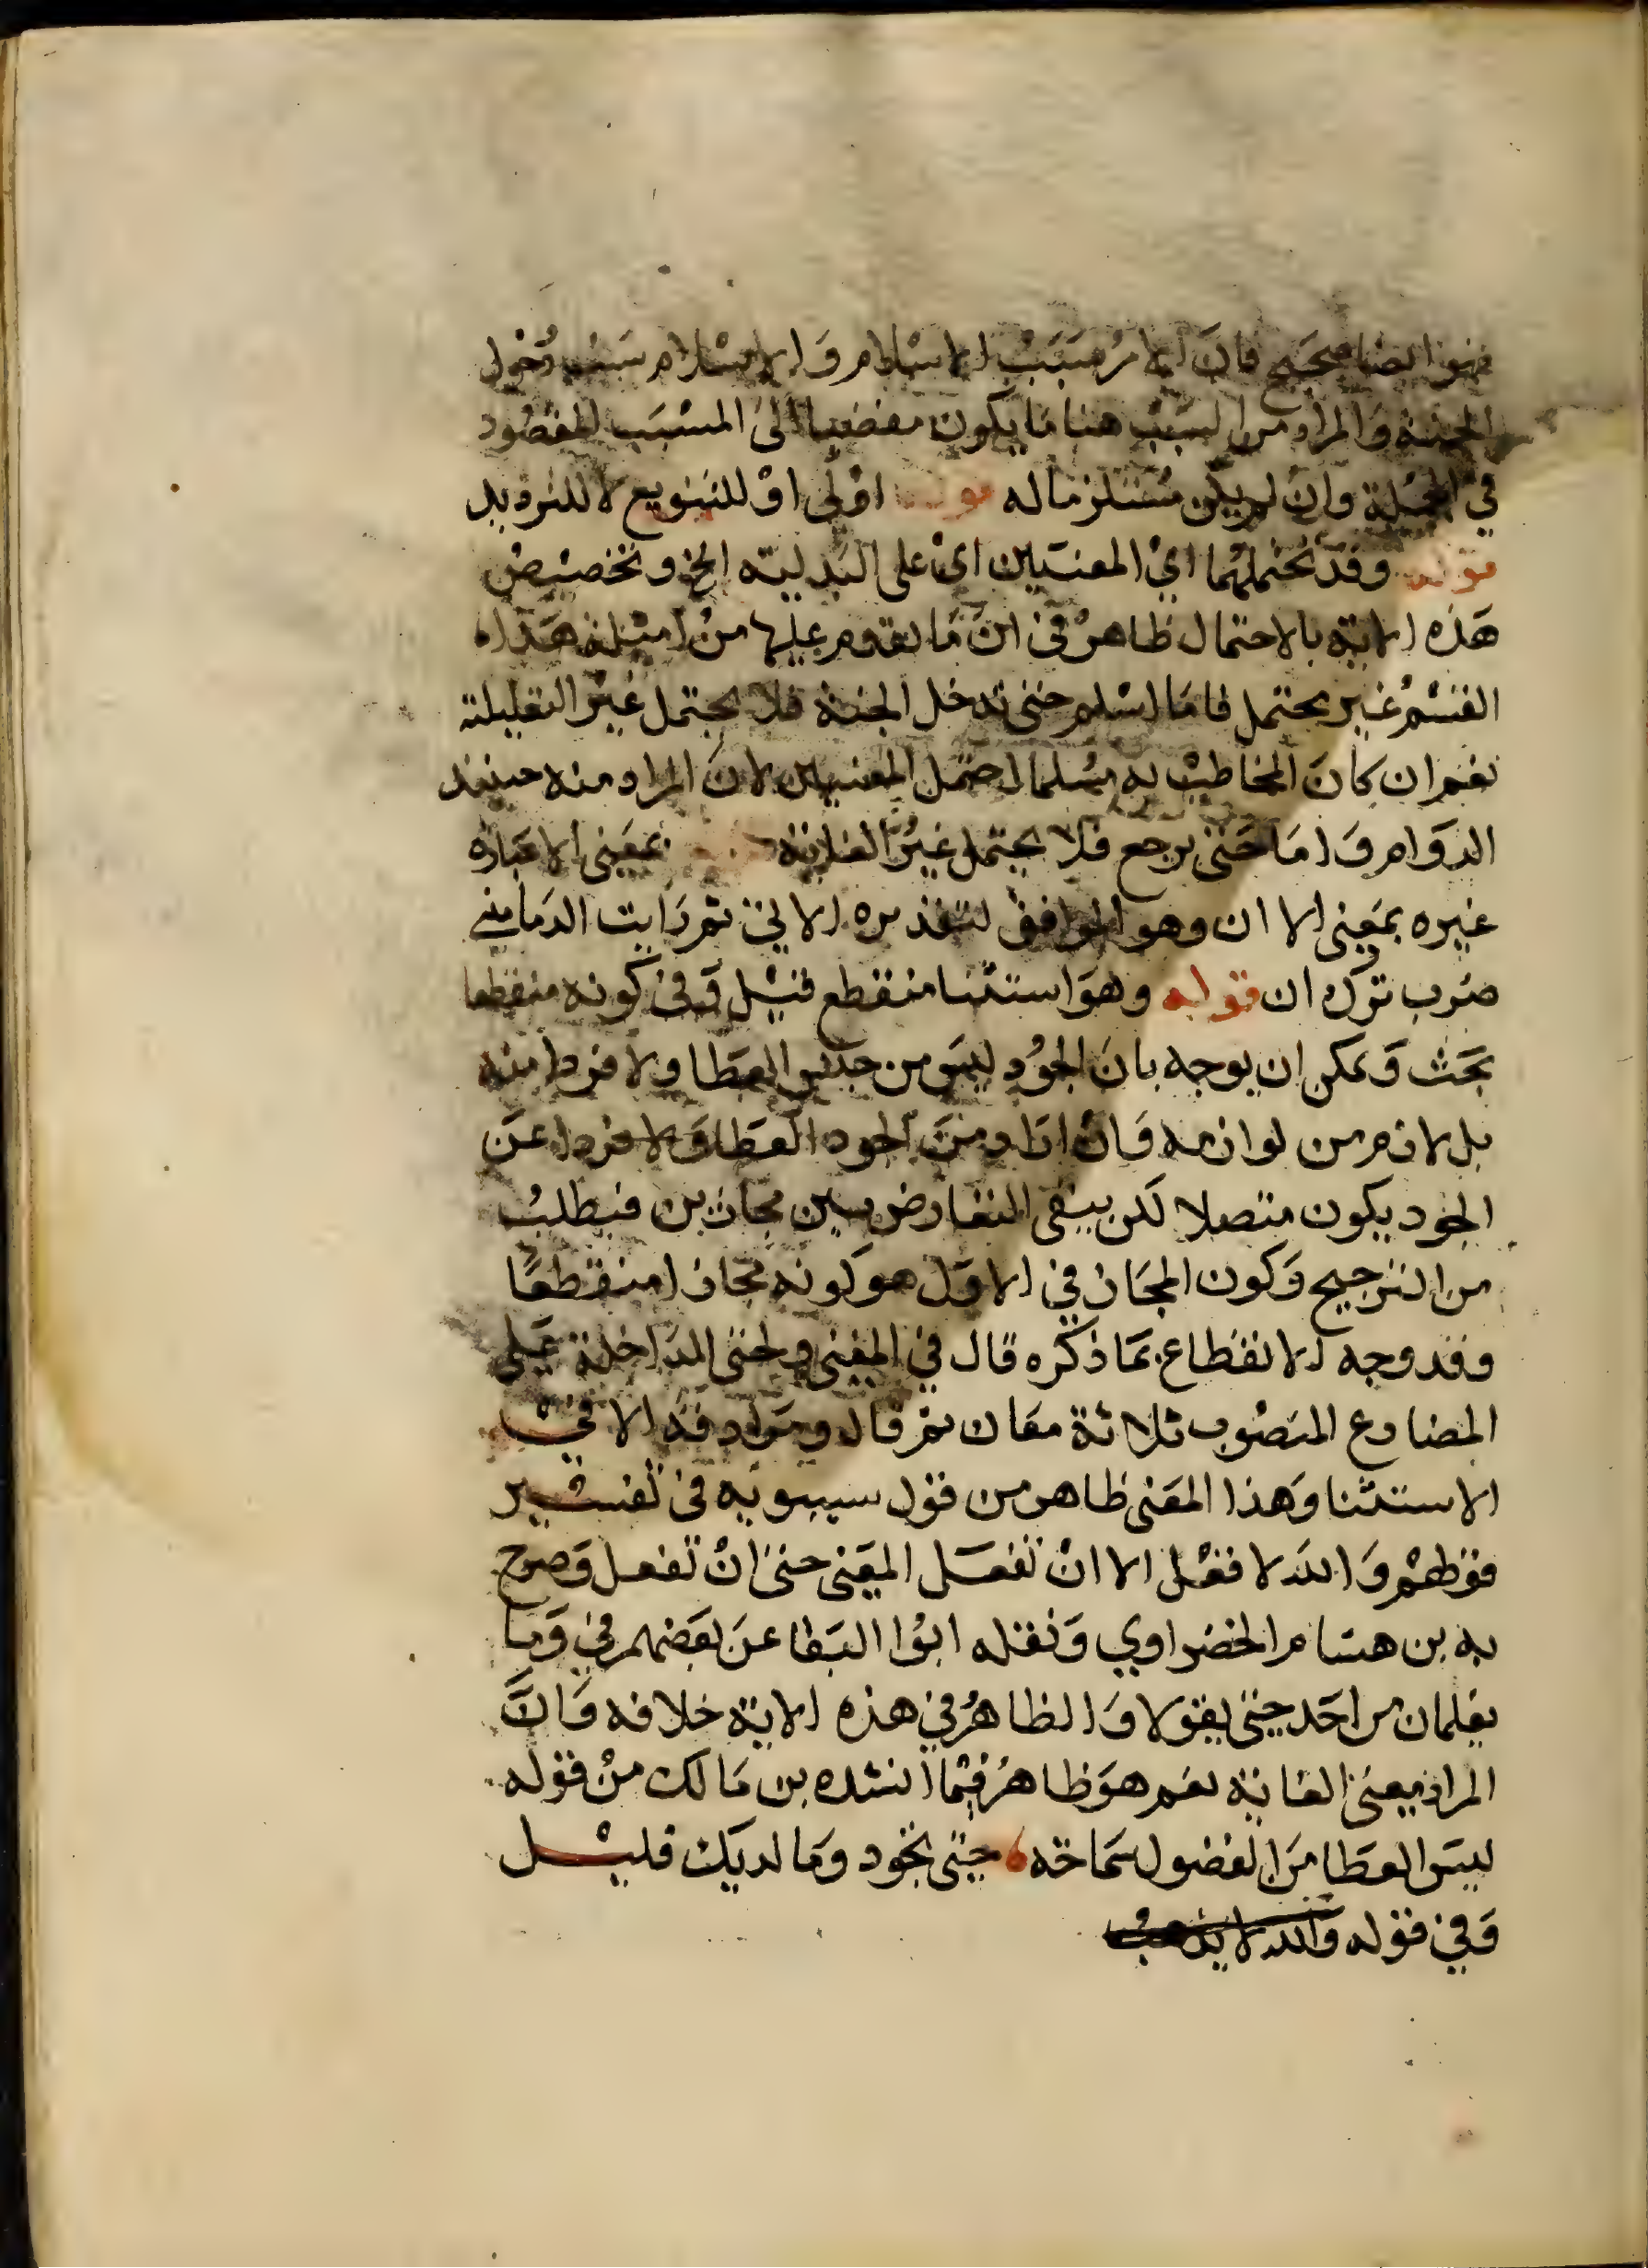 فهو ايضا صحيح فان الامر سبب الاسلام والاسلام سبب دخول
الجنة والمراد من السبب هنا ما يكون مفضيا الى المسبب المقصود
في الجملة وان لم يكن مستلزما له قوله اولى او للتنويع لا للترديد
قوله وقد تحتملهما اي المعنيين اي على البدلية الخ وتخصيص
هذه الاية بالاحتمال ظاهر في ان ما تقدم عليها من امثلة هذا
القسم غير محتمل فاما اسلم حتى تدخل الجنة فلا يحتمل غير التعليلية
نعم ان كان المخاطب به مسلما احتمل المعنيين لان المراد منه حينئذ
الدوام واما حتى يرجع فلا يحتمل غير الغاية بمعنى الا عبارة
غيره بمعنى الا ان وهو الموافق لتقديره الاتي ثم رايت الدماميني
صوب ترك ان قوله وهو استثنا منقطع قيل وفي كونه منقطعا
بحث ويمكن ان يوجه بان الجود ليس من جنس العطا ولا فردا منه
بل لازم من لوازمه وان اراد من الجود العطا ولا فردا عن
الجود يكون متصلا لكن يبقى التعارض بين مجازين فيطلب
من الترجيح وكون المجاز في الاول هو كونه مجازا منقطعا
وقد وجه الانقطاع بما ذكره قال في المغني ولحتى الداخلة على
المضارع المنصوب ثلاثة معان ثم قال ومرادفة الا في
الاستثنا وهذا المعنى ظاهر من قول سيبويه في تفسير
قولهم والله لا افعل الا ان تفعل المعنى حتى ان تفعل وصرح
به بن هشام الخضراوي ونقله ابوا البقا عن بعضهم في وما
يعلمان من احد حتى يقولا والظاهر في هذه الاية خلافه وان
المراد معنى الغاية نعم هو ظاهر فيما انشده بن مالك من قوله
ليس العطا من الفضول سماحة حتى تجود وما لديك قليل
وفي قوله والله لا يذهب